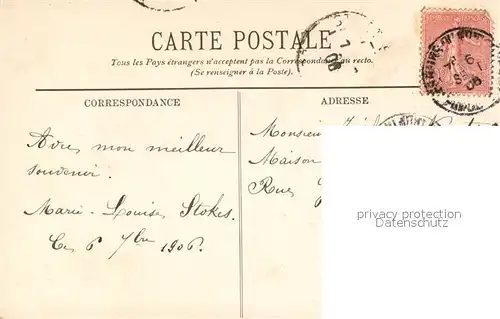 CARTE POSTALE
Tous les Pays étrangers n'acceptent pas la Correspondance au recto.
(Se renseigner à la Poste).
CORRESPONDANCE
ADRESSE
mon meilleur
souvenir.
Marie-Louise Stokes.
Ce 6 7bre 1906.
Monsieur
Maison
Rue
privacy protection
Datenschutz